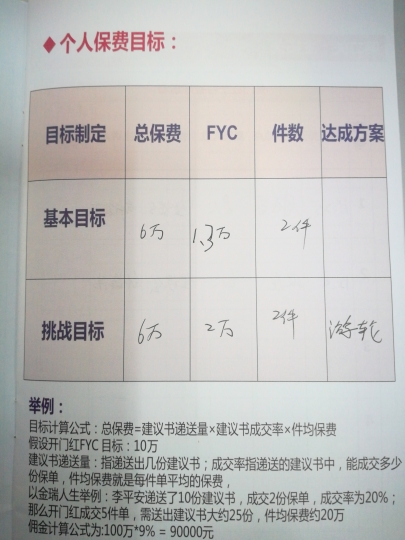 ◆个人保费目标：
目标制定 总保费 FYC 件数 达成方案
基本目标 6万 1.3万 2件
挑战目标 6万 2万 2件 游轮
举例：
目标计算公式：总保费=建议书递送量×建议书成交率×件均保费
假设开门红FYC 目标：10万
建议书递送量：指递送出几份建议书；成交率指递送的建议书中，能成交多少
份保单，件均保费就是每件单平均的保费，
以金瑞人生举例：李平安递送了10份建议书，成交2份保单，成交率为20%；
那么开门红成交5件单，需送出建议书大约25份，件均保费约20万
佣金计算公式为:100万*9% = 90000元